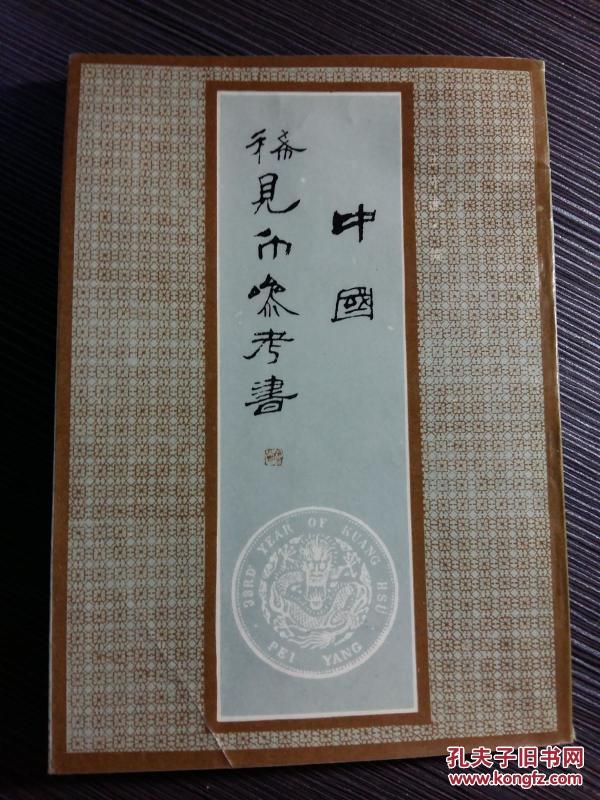 中國
稀見币參考書
93RD YEAR OF KUANG HSU
PEI YANG
孔夫子旧书网
www.kongfz.com